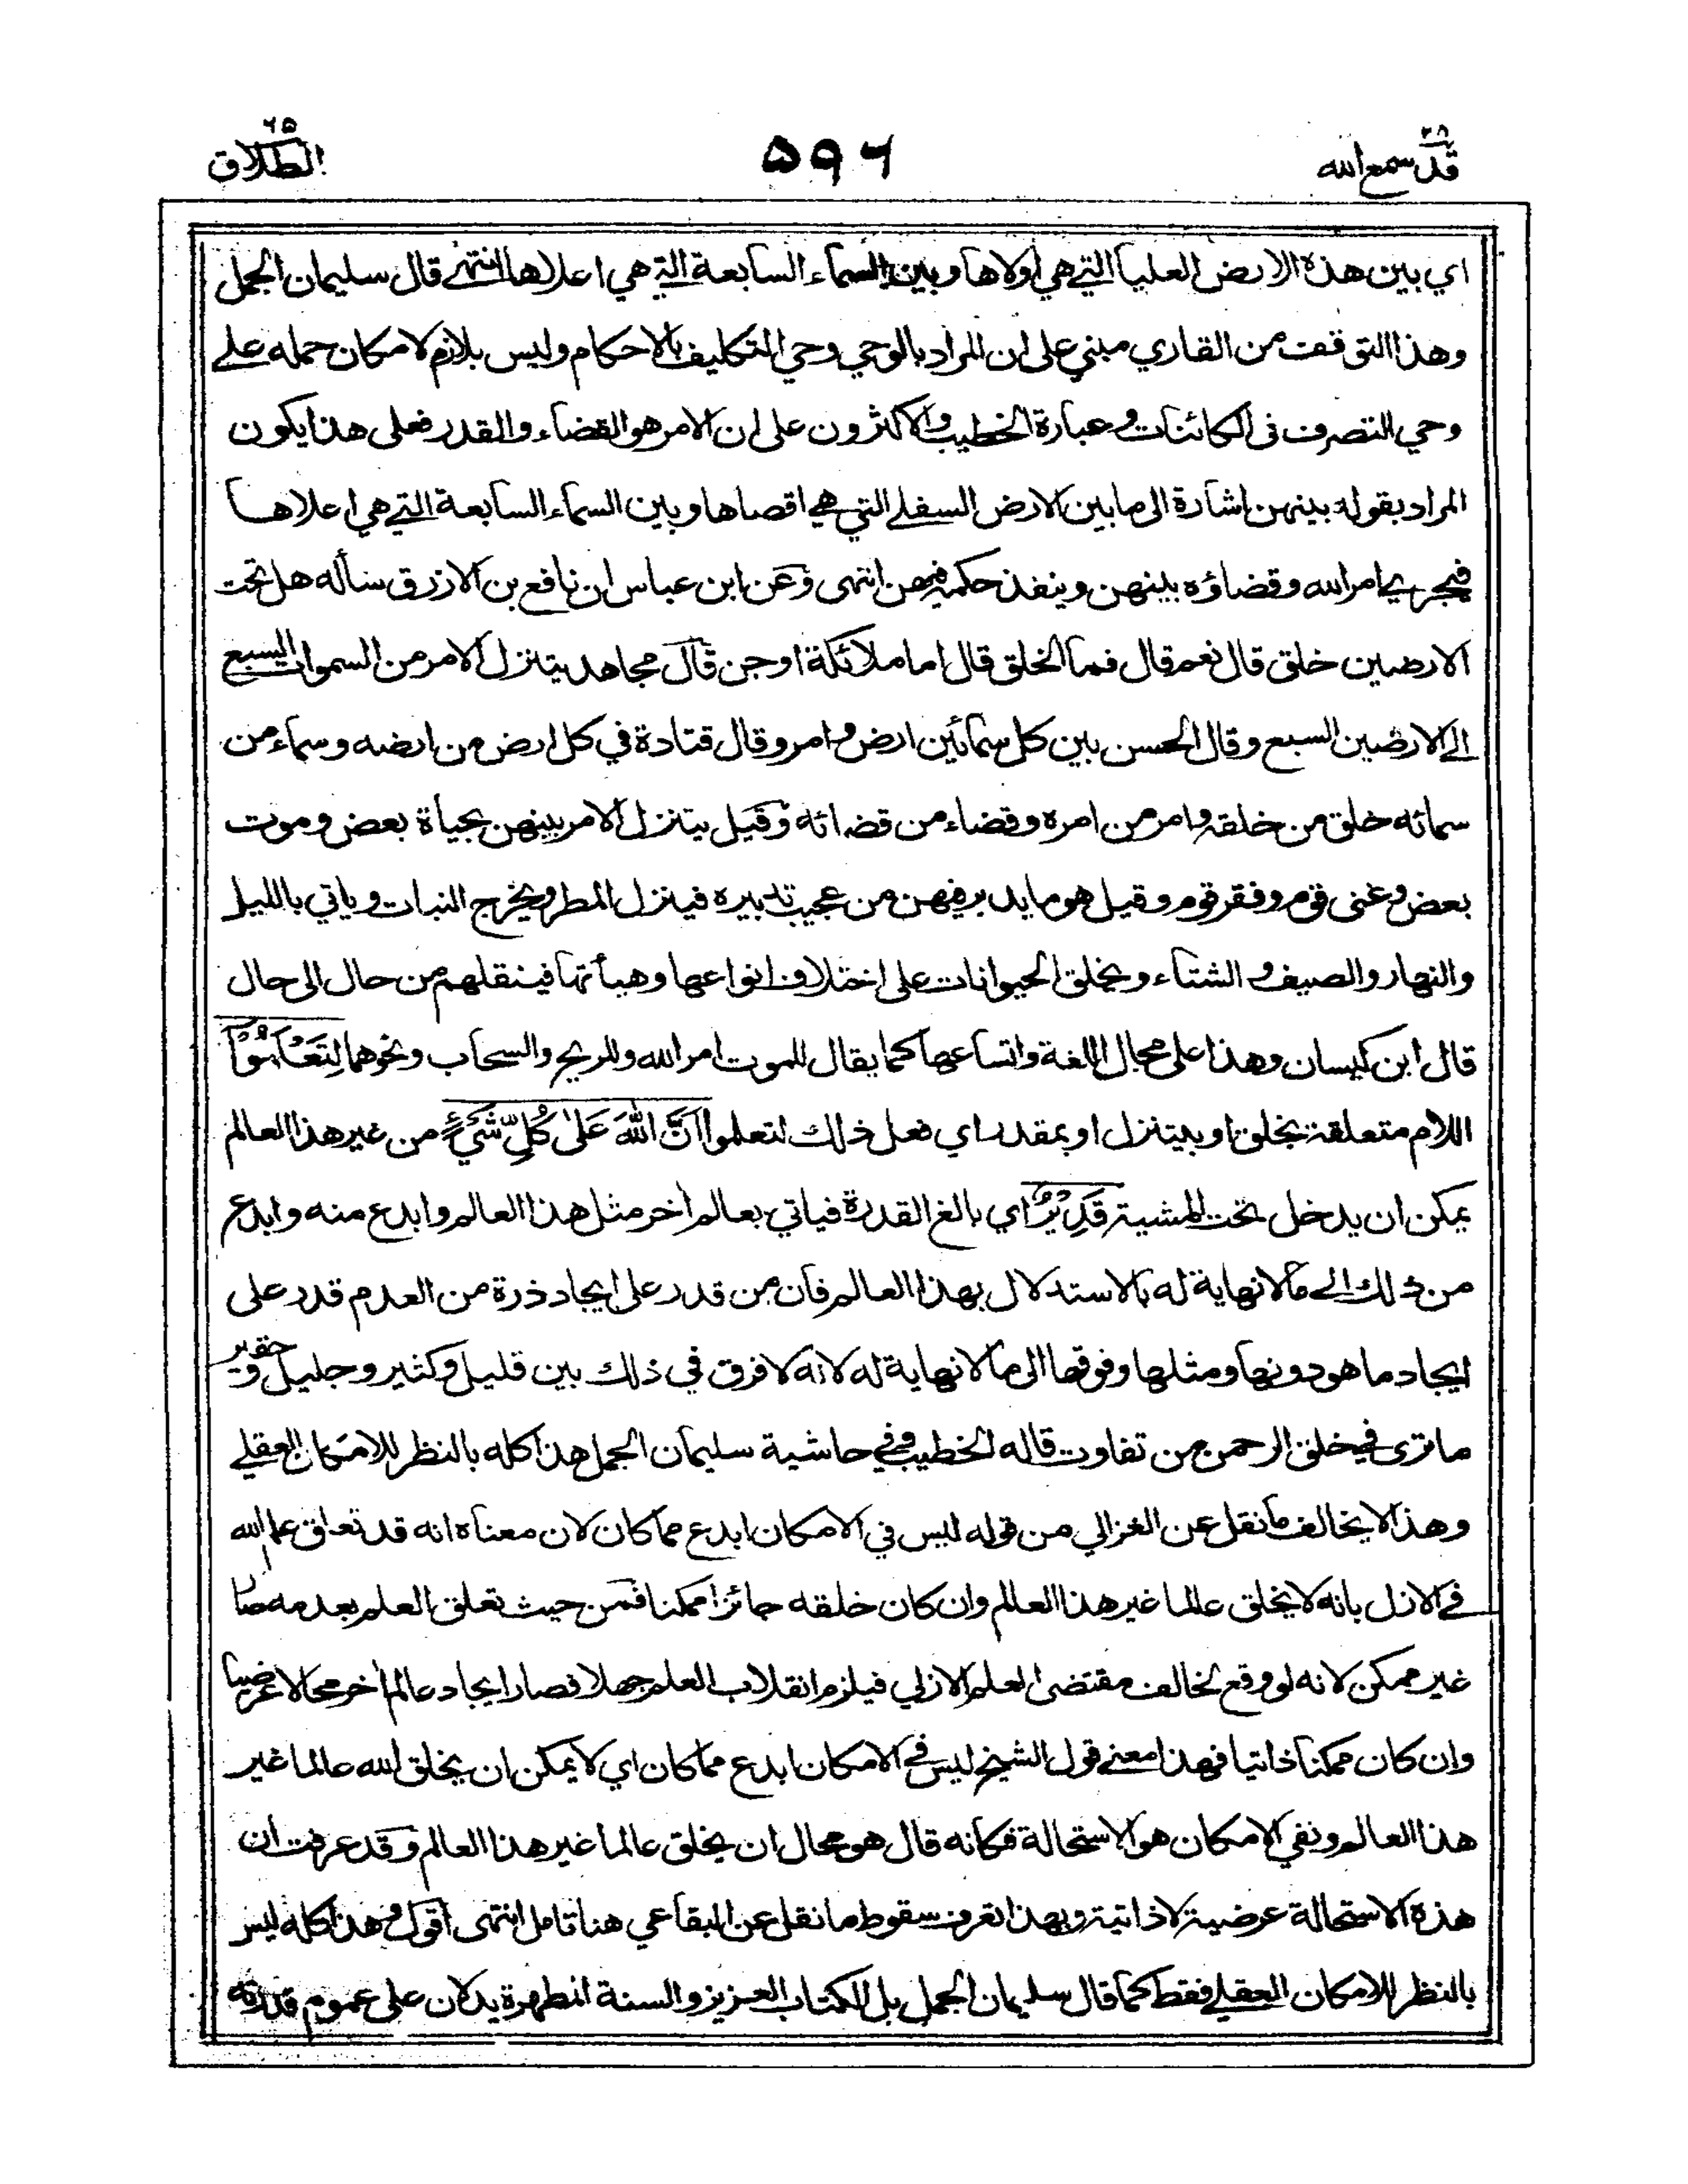 قد سمع الله ٢٨
۵۹۶
الطلاق ٦٥
اي بين هذه الارض العليا التي هي اولاها وبين السماء السابعة التي هي اعلاها انتهى قال سليمان الجمل
وهذا التوقف من القاري مبني على ان المراد بالوحي وحي التكليف بالاحكام وليس بلازم لامكان حمله على
وحي التصرف في الكائنات وعبارة الخطيب والاكثرون على ان الامر هو القضاء والقدر فعلى هذا يكون
المراد بقوله بينهن اشارة الى ما بين الارض السفلى التي هي اقصاها وبين السماء السابعة التي هي اعلاها
فيجري امر الله وقضاؤه بينهن وينفذ حكمه فيهن انتهى وعن ابن عباس ان نافع بن الازرق سأله هل تحت
الارضين خلق قال نعم قال فما الخلق قال اما ملائكة او جن قال مجاهد يتنزل الامر من السموات السبع
الى الارضين السبع وقال الحسن بين كل سمائين ارض وامر وقال قتادة في كل ارض من ارضه وسماء من
سمائه خلق من خلقه وامر من امره وقضاء من قضائه وقيل يتنزل الامر بينهن بحياة بعض وموت
بعض وغنى قوم وفقر قوم وقيل هو ما يدبر فيهن من عجيب تدبيره فينزل المطر ويخرج النبات وياتي بالليل
والنهار والصيف والشتاء ويخلق الحيوانات على اختلاف انواعها وهيأتها فينقلهم من حال الى حال
قال ابن كيسان وهذا على مجال اللغة واتساعها كما يقال للموت امر الله وللريح والسحاب ونحوها لِتَعْلَمُوْا
اللام متعلقة بخلق او بيتنزل او بمقدر اي فعل ذلك لتعلموا اَنَّ اللهَ عَلٰى كُلِّ شَيْءٍ من غير هذا العالم
يمكن ان يدخل تحت المشية قَدِيْرٌ اي بالغ القدرة فياتي بعالم اخر مثل هذا العالم وابدع منه وابدع
من ذلك الى ما لانهاية له بالاستدلال بهذا العالم فان من قدر على ايجاد ذرة من العدم قدر على
ايجاد ما هو دونها ومثلها وفوقها الى ما لانهاية له لانه لا فرق في ذلك بين قليل وكثير وجليل وحقير
ما ترى في خلق الرحمن من تفاوت قاله الخطيب وفي حاشية سليمان الجمل هذا كله بالنظر للامكان العقلي
وهذا لا يخالف ما نقل عن الغزالي من قوله ليس في الامكان ابدع مما كان لان معناه انه قد تعلق علم الله
في الازل بانه لا يخلق عالما غير هذا العالم وان كان خلقه جائزا ممكنا فمن حيث تعلق العلم بعدمه صار
غير ممكن لانه لو وقع لخالف مقتضى العلم الازلي فيلزم انقلاب العلم جهلا فصار ايجاد عالم اخر محالا عرضيا
وان كان ممكنا ذاتيا فهذا معنى قول الشيخ ليس في الامكان ابدع مما كان اي لا يمكن ان يخلق الله عالما غير
هذا العالم ونفي الامكان هو الاستحالة فكانه قال هو محال ان يخلق عالما غير هذا العالم وقد عرفت ان
هذه الاستحالة عرضية لا ذاتية وبهذا تعرف سقوط ما نقل عن البقاعي هنا تامل انتهى اقول وهذا كله ليس
بالنظر للامكان العقلي فقط كما قال سليمان الجمل بل الكتاب العزيز والسنة المطهرة يدلان على عموم قدرته